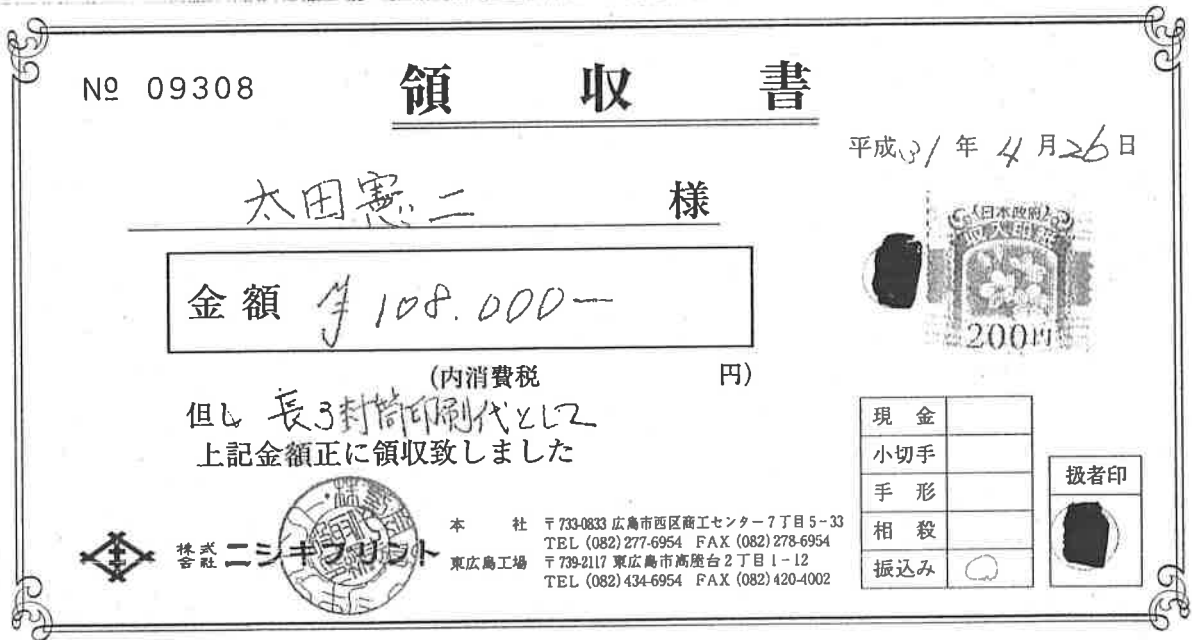 № 09308
領収書
平成31年4月26日
太田憲二 様
日本政府
収入印紙
200円
金額 ¥108.000ー
(内消費税 円)
但し 長3封筒印刷代として
上記金額正に領収致しました
現金
小切手
手形
相殺
振込み ○
扱者印
株式会社 ニシキプリント
本社 〒733-0833 広島市西区商工センター7丁目5-33
TEL (082)277-6954 FAX (082)278-6954
東広島工場 〒739-2117 東広島市高屋台2丁目1-12
TEL (082)434-6954 FAX (082)420-4002